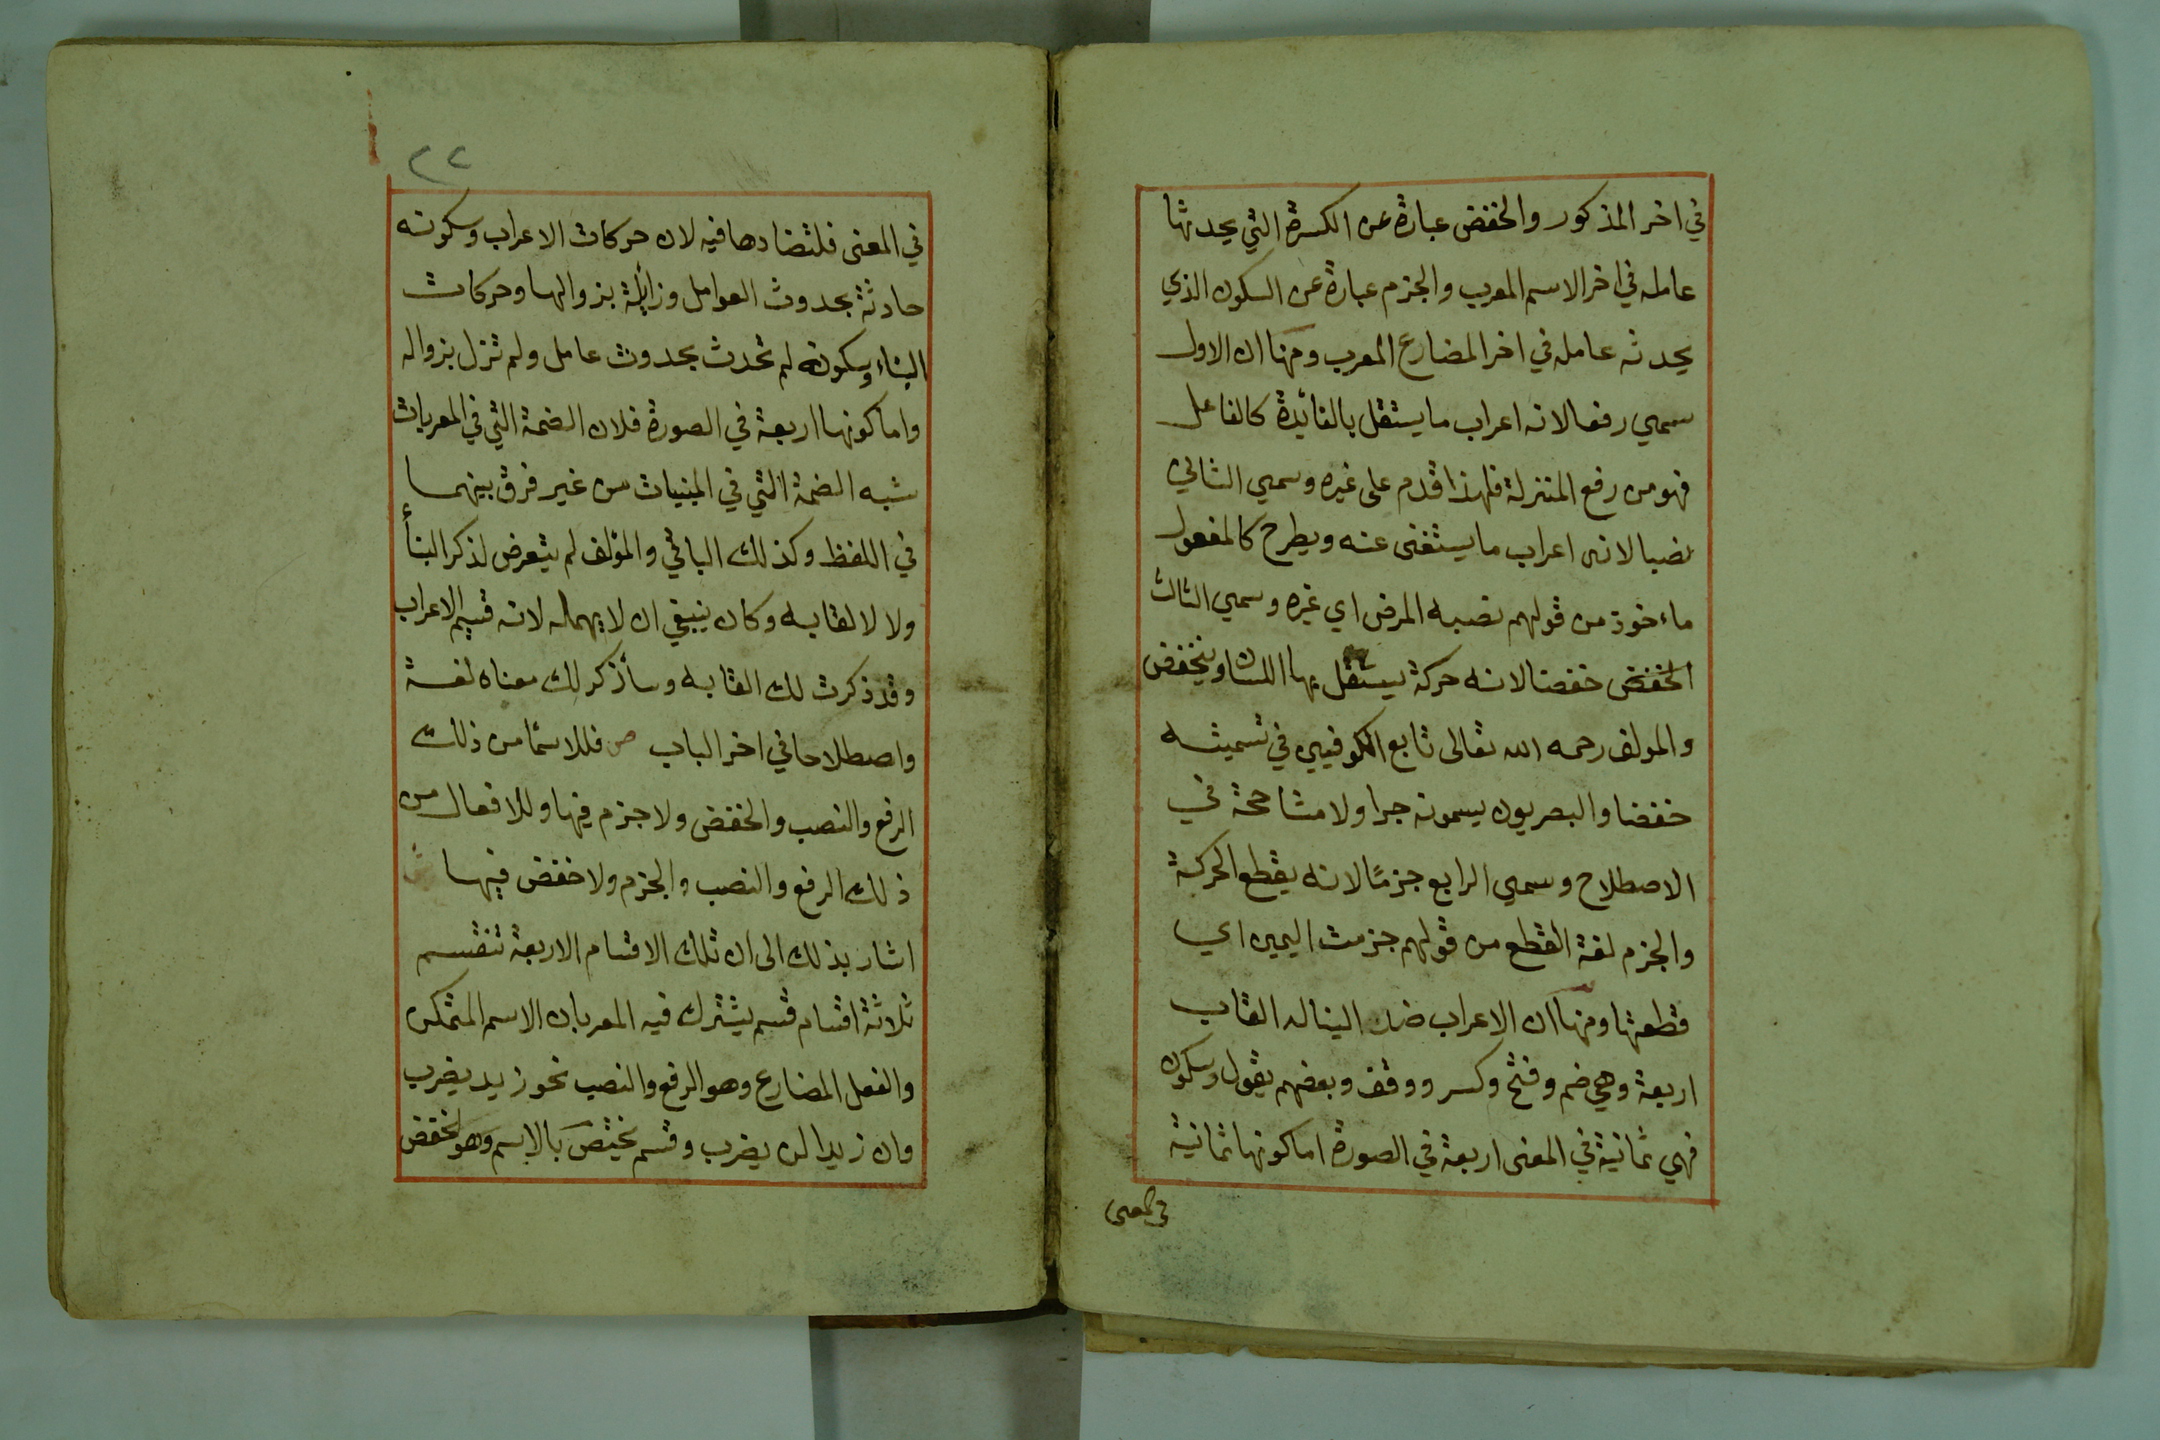 في اخر المذكور والخفض عبارة عن الكسرة التي يحدثها
عامله في اخر الاسم المعرب والجزم عبارة عن السكون الذي
يحدثه عامله في اخر المضارع المعرب ومنها ان الاول
سمي رفعا لانه اعراب ما يستقل بالفائدة كالفاعل
فهو من رفع المنزلة فلهذا قدم على غيره وسمي الثاني
نصبا لانه اعراب ما يستغنى عنه ويطرح كالمفعول
ماءخوذ من قولهم نصبه المرض اي غيره وسمي الثالث
الخفض خفضا لانه حركة يستقل بها اللسان وينخفض
والمولف رحمه الله تعالى تابع الكوفيين في تسميته
خفضا والبصريون يسمونه جرا ولا مشاححة في
الاصطلاح وسمي الرابع جزمًا لانه يقطع الحركة
والجزم لغة القطع من قولهم جزمت اليمين اي
قطعتها ومنها ان الاعراب ضد البنا له القاب
اربعة وهي ضم وفتح وكسر ووقف وبعضهم يقول وسكون
فهي ثمانية في المعنى اربعة في الصورة اما كونها ثمانية
في المعنى
٢٢
في المعنى فلتضادها فيه لان حركات الاعراب وسكونه
حادثة بحدوث العوامل وزائلة بزوالها وحركات
البناء وسكونه لم تحدث بحدوث عامل ولم تزل بزواله
واما كونها اربعة في الصورة فلان الضمة التي في المعربات
شبه الضمة التي في المبنيات من غير فرق بينهما
في اللفظ وكذلك الباقي والمؤلف لم يتعرض لذكر البنأ
ولا لالقابه وكان ينبغي ان لا يهمله لانه قسيم الاعراب
وقد ذكرت لك القابه وسأذكر لك معناه لغة
واصطلاحا في اخر الباب ص فللاسما من ذلك
الرفع والنصب والخفض ولا جزم فيها وللافعال من
ذلك الرفع والنصب والجزم ولا خفض فيها ش
اشار بذلك الى ان تلك الاقسام الاربعة تنقسم
ثلاثة اقسام قسم يشترك فيه المعربان الاسم المتمكن
والفعل المضارع وهو الرفع والنصب نحو زيد يضرب
وان زيدا لن يضرب وقسم يختص بالاسم وهو الخفض